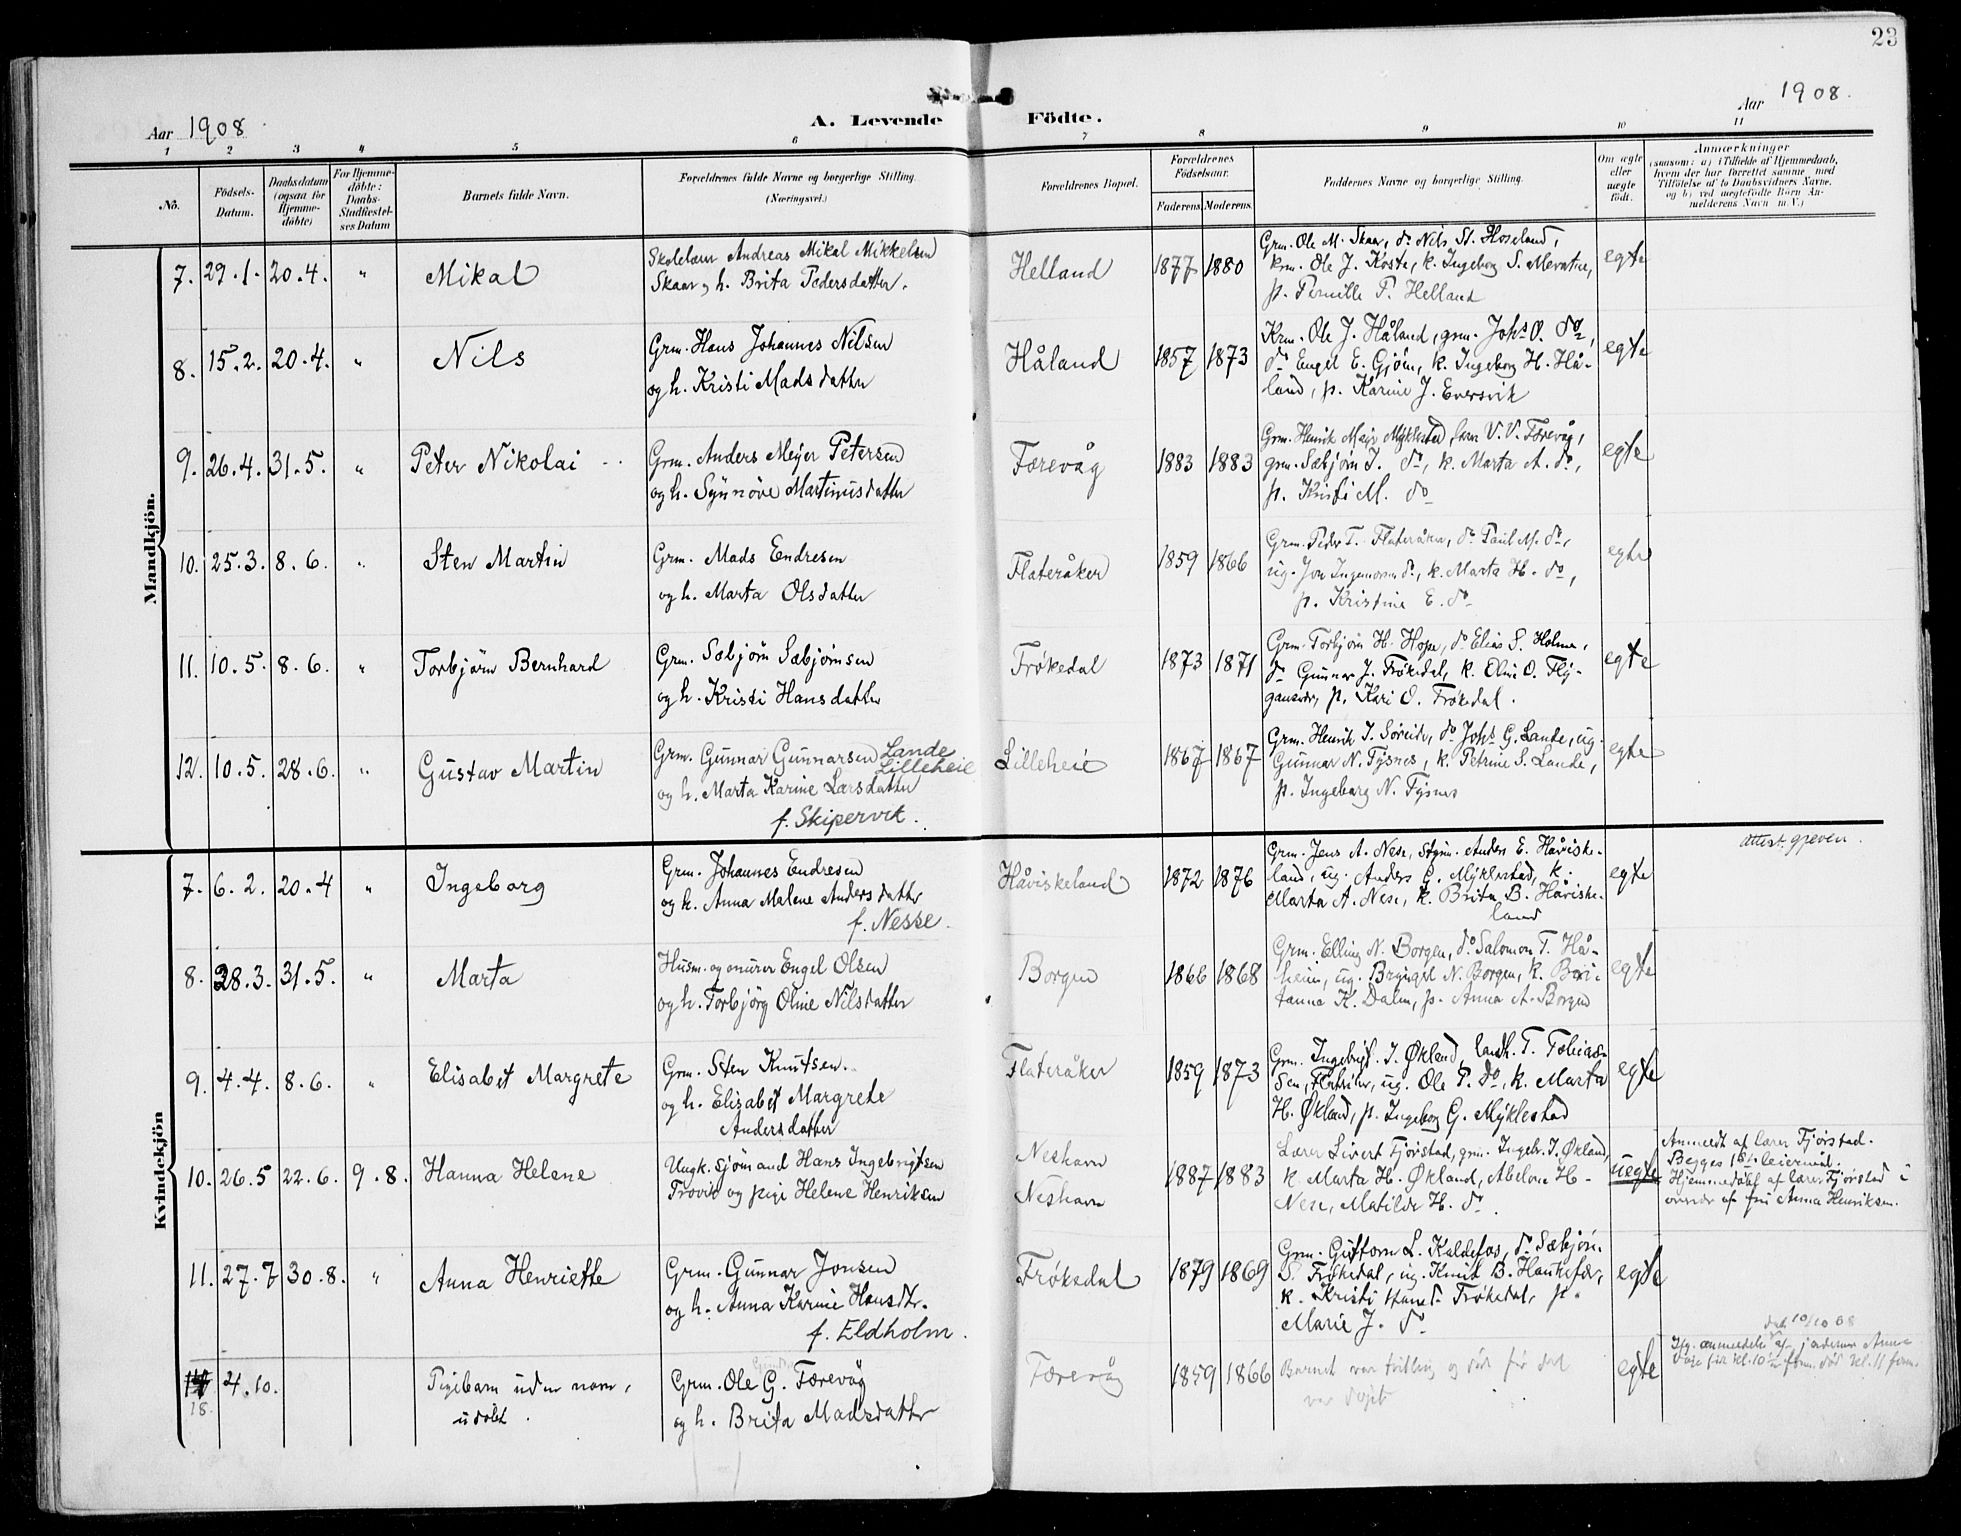 23
Aar 1908.
A. Levende Födte.
Aar 1908.
1 2 3 4 5 6 7 8 9 10 11
No.
Födsels-Datum.
Daabsdatum (ogsaa for Hjemme-döbte)
For Hjemme-döbte: Daabs-Stadfæstel-ses Datum
Barnets fulde Navn.
Forældrenes fulde Navne og borgerlige Stilling.
(Næringsvei.)
Forældrenes Bopæl.
Forældrenes Födselsaar.
Faderens. Moderens.
Faddernes Navne og borgerlige Stilling.
Om ægte eller uægte födt.
Anmærkninger
(saasom: a) i Tilfælde af Hjemmedaab,
hvem der har forrettet samme, med
Tilföielse af to Daabsvidners Navne,
og b) ved uægtefödte Börn An-
melderens Navn m. V.)
Mandkjön.
7. 29.1. 20.4. " Mikal
Skolelærer Andreas Mikal Mikkelsen
Skaar og h. Brita Pedersdatter.
Helland 1877 1880
Grm. Ole M. Skaar, do Nils St. Hoseland,
krm. Ole J. Koste, k. Ingeborg S.
p. Pernille P. Helland
egte
8. 15.2. 20.4. " Nils
Grm. Hans Johannes Nilsen
og h. Kristi Madsdatter
Håland 1857 1873
Krm. Ole J. Håland, grm. Johs O. do,
do Engel E. Gjøen, k. Ingeborg H. Hå-
land, p. Karine J. Eversvik
egte
9. 26.4. 31.5. " Peter Nikolai
Grm. Anders Meyer Petersen
og h. Synnøve Martinusdatter
Færevåg 1883 1883
Grm. Henrik Meyer Myklestad, V. V. Færevåg,
grm. Sæbjørn I. do, k. Marta A. do,
p. Kristi M. do
egte
10. 25.3. 8.6. " Sten Martin
Grm. Mads Endresen
og h. Marta Olsdatter
Flateråker 1859 1866
Grm. Peder T. Flateråker, do Paul M. do,
ug. Jon Ingemann do, k. Marta H. do,
p. Kristine E. do
egte
11. 10.5. 8.6. " Torbjørn Bernhard
Grm. Sæbjørn Sæbjørnsen
og h. Kristi Hansdatter
Frøkedal 1873 1871
Grm. Torbjørn H. Hope, do Elias S. Holme,
do Gunnar J. Frøkedal, k. Oline O. Fly-
gansvær, p. Kari O. Frøkedal.
egte
12. 10.5. 28.6. " Gustav Martin
Grm. Gunnar Gunnarsen Lande
Lilleheie
og h. Marta Karine Larsdatter
f. Skipervik.
Lilleheie 1867 1867
Grm. Henrik I. Søreide, do Johs G. Lande, ug.
Gunnar N. Tysnes, k. Petrine S. Lande,
p. Ingeborg N. Tysnes
egte
Kvindekjön
7. 6.2. 20.4 " Ingeborg
Grm. Johannes Endresen
og h. Anna Malene Andersdatter
f. Nesse.
Håviskeland 1872 1876
Grm. Jens A. Nese, Anders E. Håviske-
land, ug. Anders G. Myklestad, k.
Marta A. Nese, k. Brita B. Håviske-
land
egte
Attest. gjeven.
8. 28.3. 31.5. " Marta
Husm. og murer Engel Olsen
og h. Torbjørg Oline Nilsdatter
Borgen 1866 1868
Grm. Elling N. Borgen, do Salomon T. Hå-
heim, ug. Brynjel N. Borgen, k. Beri-
tanna K. Dalen, p. Anna A. Borgen
egte
9. 4.4. 8.6. " Elisabet Margrete
Grm. Sten Knutsen.
og h. Elisabet Margrete
Andersdatter
Flateråker 1859 1873
Grm. Ingebrigt. I. Økland, landh. T. Tobias-
sen, Flateråker, ug. Ole P. do, k. Marta
H. Økland, p. Ingeborg G. Myklestad
egte
10. 26.5 22.6. 9.8. Hanna Helene
Ungk. sjømand Hans Ingebrigtsen
Trovik og pige Helene Henriksen
Neshavn
Neshavn
1887 1883
Lærer Sivert Fjørstad, grm. Ingebr. I. Økland,
k. Marta H. Økland, Abelone H.
Nese, Matilde H. do.
uegte
Anmeldt af lærer Fjørstad.
Begges 1st leiermål.
Hjemmedøbt af lærer Fjørstad i
nærvær af Anna Henriksen.
11. 27.7 30.8. " Anna Henriette
Grm. Gunnar Jonsen
og h. Anna Karine Hansdtr.
f. Eldholm.
Frøkedal 1879 1869
Grm. Guttorm L. Kaldefos, do Sæbjørn
S. Frøkedal, ug. Knut B. Haukefær,
k. Kristi Hansd. Frøkedal, p.
Marie J. do
egte
18. 4.10.
Pigebarn uden navn,
udøbt.
Grm. Ole G. Færevåg
og h. Brita Madsdatter
Færevåg 1859 1866
Barnet var tvilling og død før det
var døpt
egte
10/10 08
Ifg. anmeldelse af jordemor
kl. 10 form. død kl. 11 form.